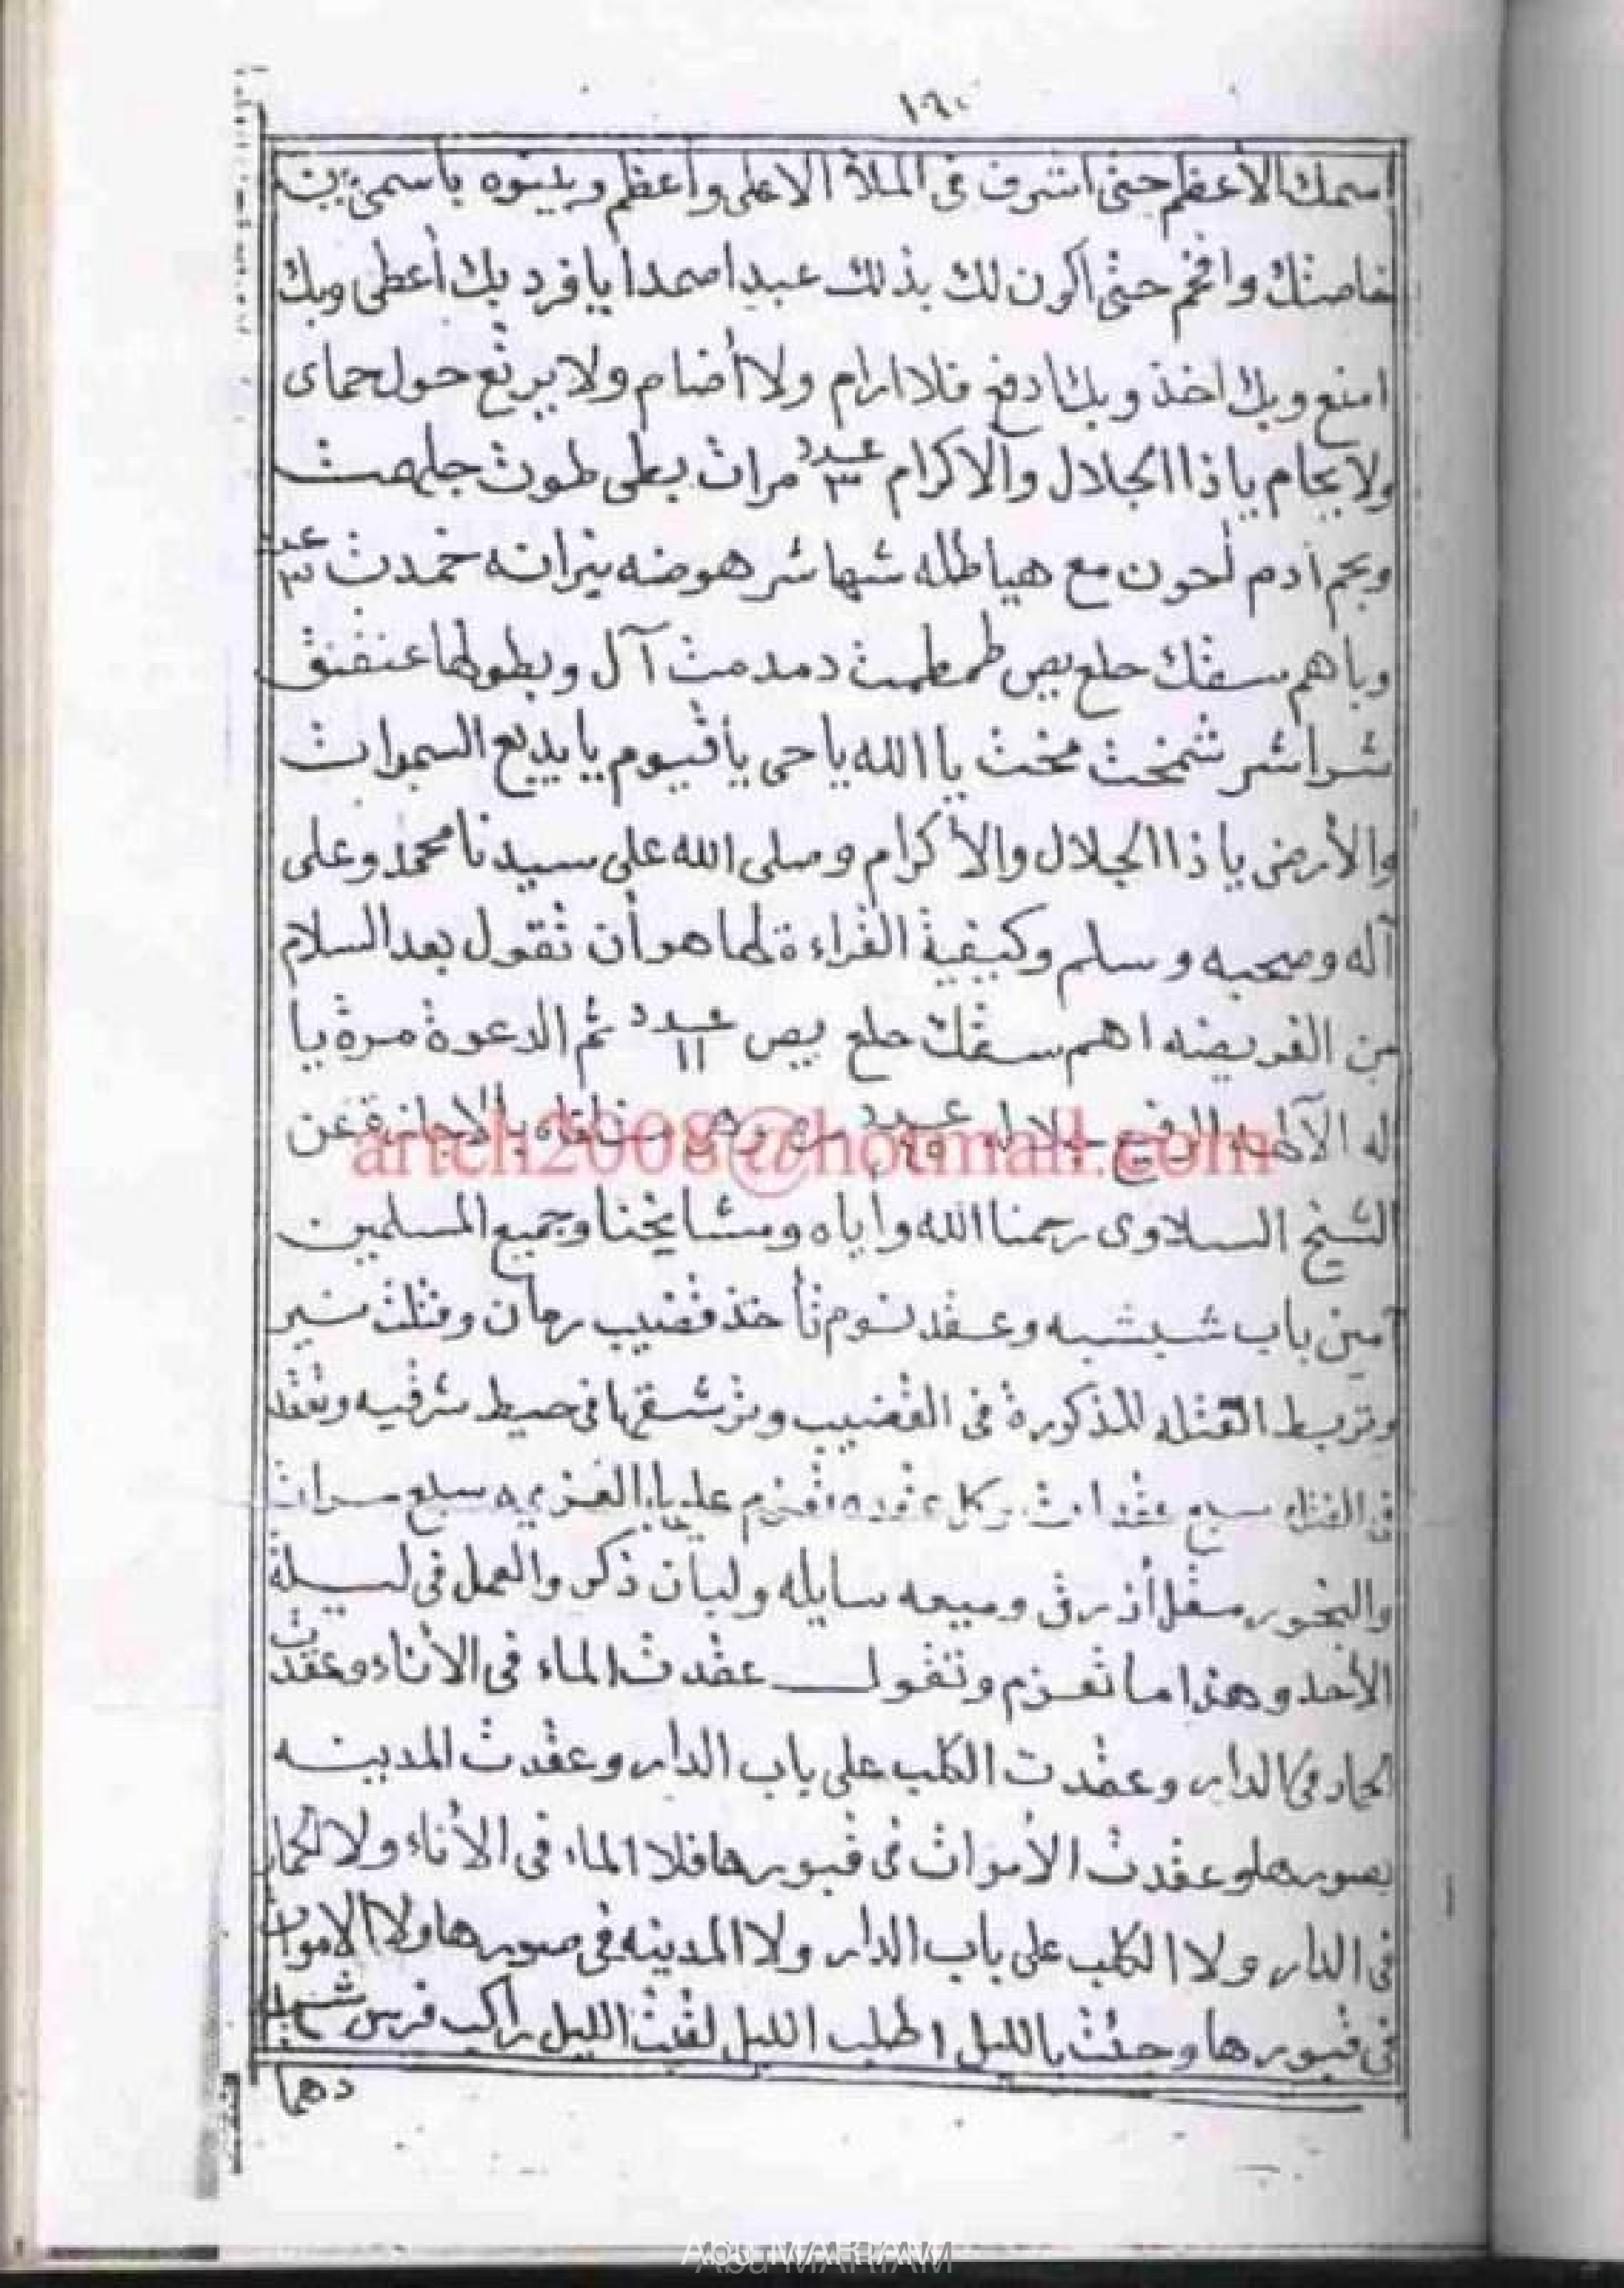 ١٦٠
اسمك الأعظم حتى اشرف فى الملأ الاعلى وأعظم وينوه باسمى بين
خاصتك وافخم حتى أكون لك بذلك عبدا صمدا يا فرد بك أعطى وبك
امنع وبك اخذ وبك ادفع فلا ارام ولا أضام ولا يرتع حول حماى
ولا يحام يا ذا الجلال والاكرام عدد ٣ مرات بطى طوت جلهمت
وبحم أدم لحون مع هياطله شهاشر هوضه نيرانه خمدت عدد ٣
وباهم سقك حلع يص طمطمت دمدمت آل وبطوطها عنفنق
شراشر شمخت يا الله يا حى يا قيوم يا بديع السموات
والأرض يا ذا الجلال والأكرام وصلى الله على سيدنا محمد وعلى
آله وصحبه وسلم وكيفية القراءة لها هو أن تقول بعد السلام
من الفريضه اهم سقك حلع يص عدد ١١ ثم الدعوة مرة يا
اله الآلهه الرفيع جلاله عدد بالاجازة عن
artch2008@hotmail.com
الشيخ السلاوى رحمنا الله وأياه ومشايخنا وجميع المسلمين
أمين باب شبشبه وعقد نوم تأخذ قضيب رمان وفتلت
وتربط الفتله المذكورة فى القضيب وترشقها فى حيط شرقيه وتعقد
فى الفتله سبع عقدات وكل عقده تعزم عليها العزيمه سبع مرات
والبخور مقل أزرق وميعه سايله ولبان ذكر والعمل فى ليلة
الأحد وهذا ما تعزم وتقول عقدت الماء فى الأناء وعقدت
الحمار فى الدار وعقدت الكلب على باب الدار وعقدت المدينه
بصورها وعقدت الأموات فى قبورها فلا الماء فى الأناء ولا الحمار
فى الدار ولا الكلب على باب الدار ولا المدينه فى صورها ولا الاموات
فى قبورها وجئت بالليل اطلب الليل لقيت الليل راكب فرس
دهما
Abu MARIAM